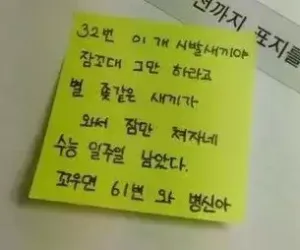 전까지 표지를
32번 이 개 시발새끼야
잠꼬대 그만 하라고
별 좆같은 새끼가
와서 잠만 쳐자네
수능 일주일 남았다.
꼬우면 61번 와 병신아